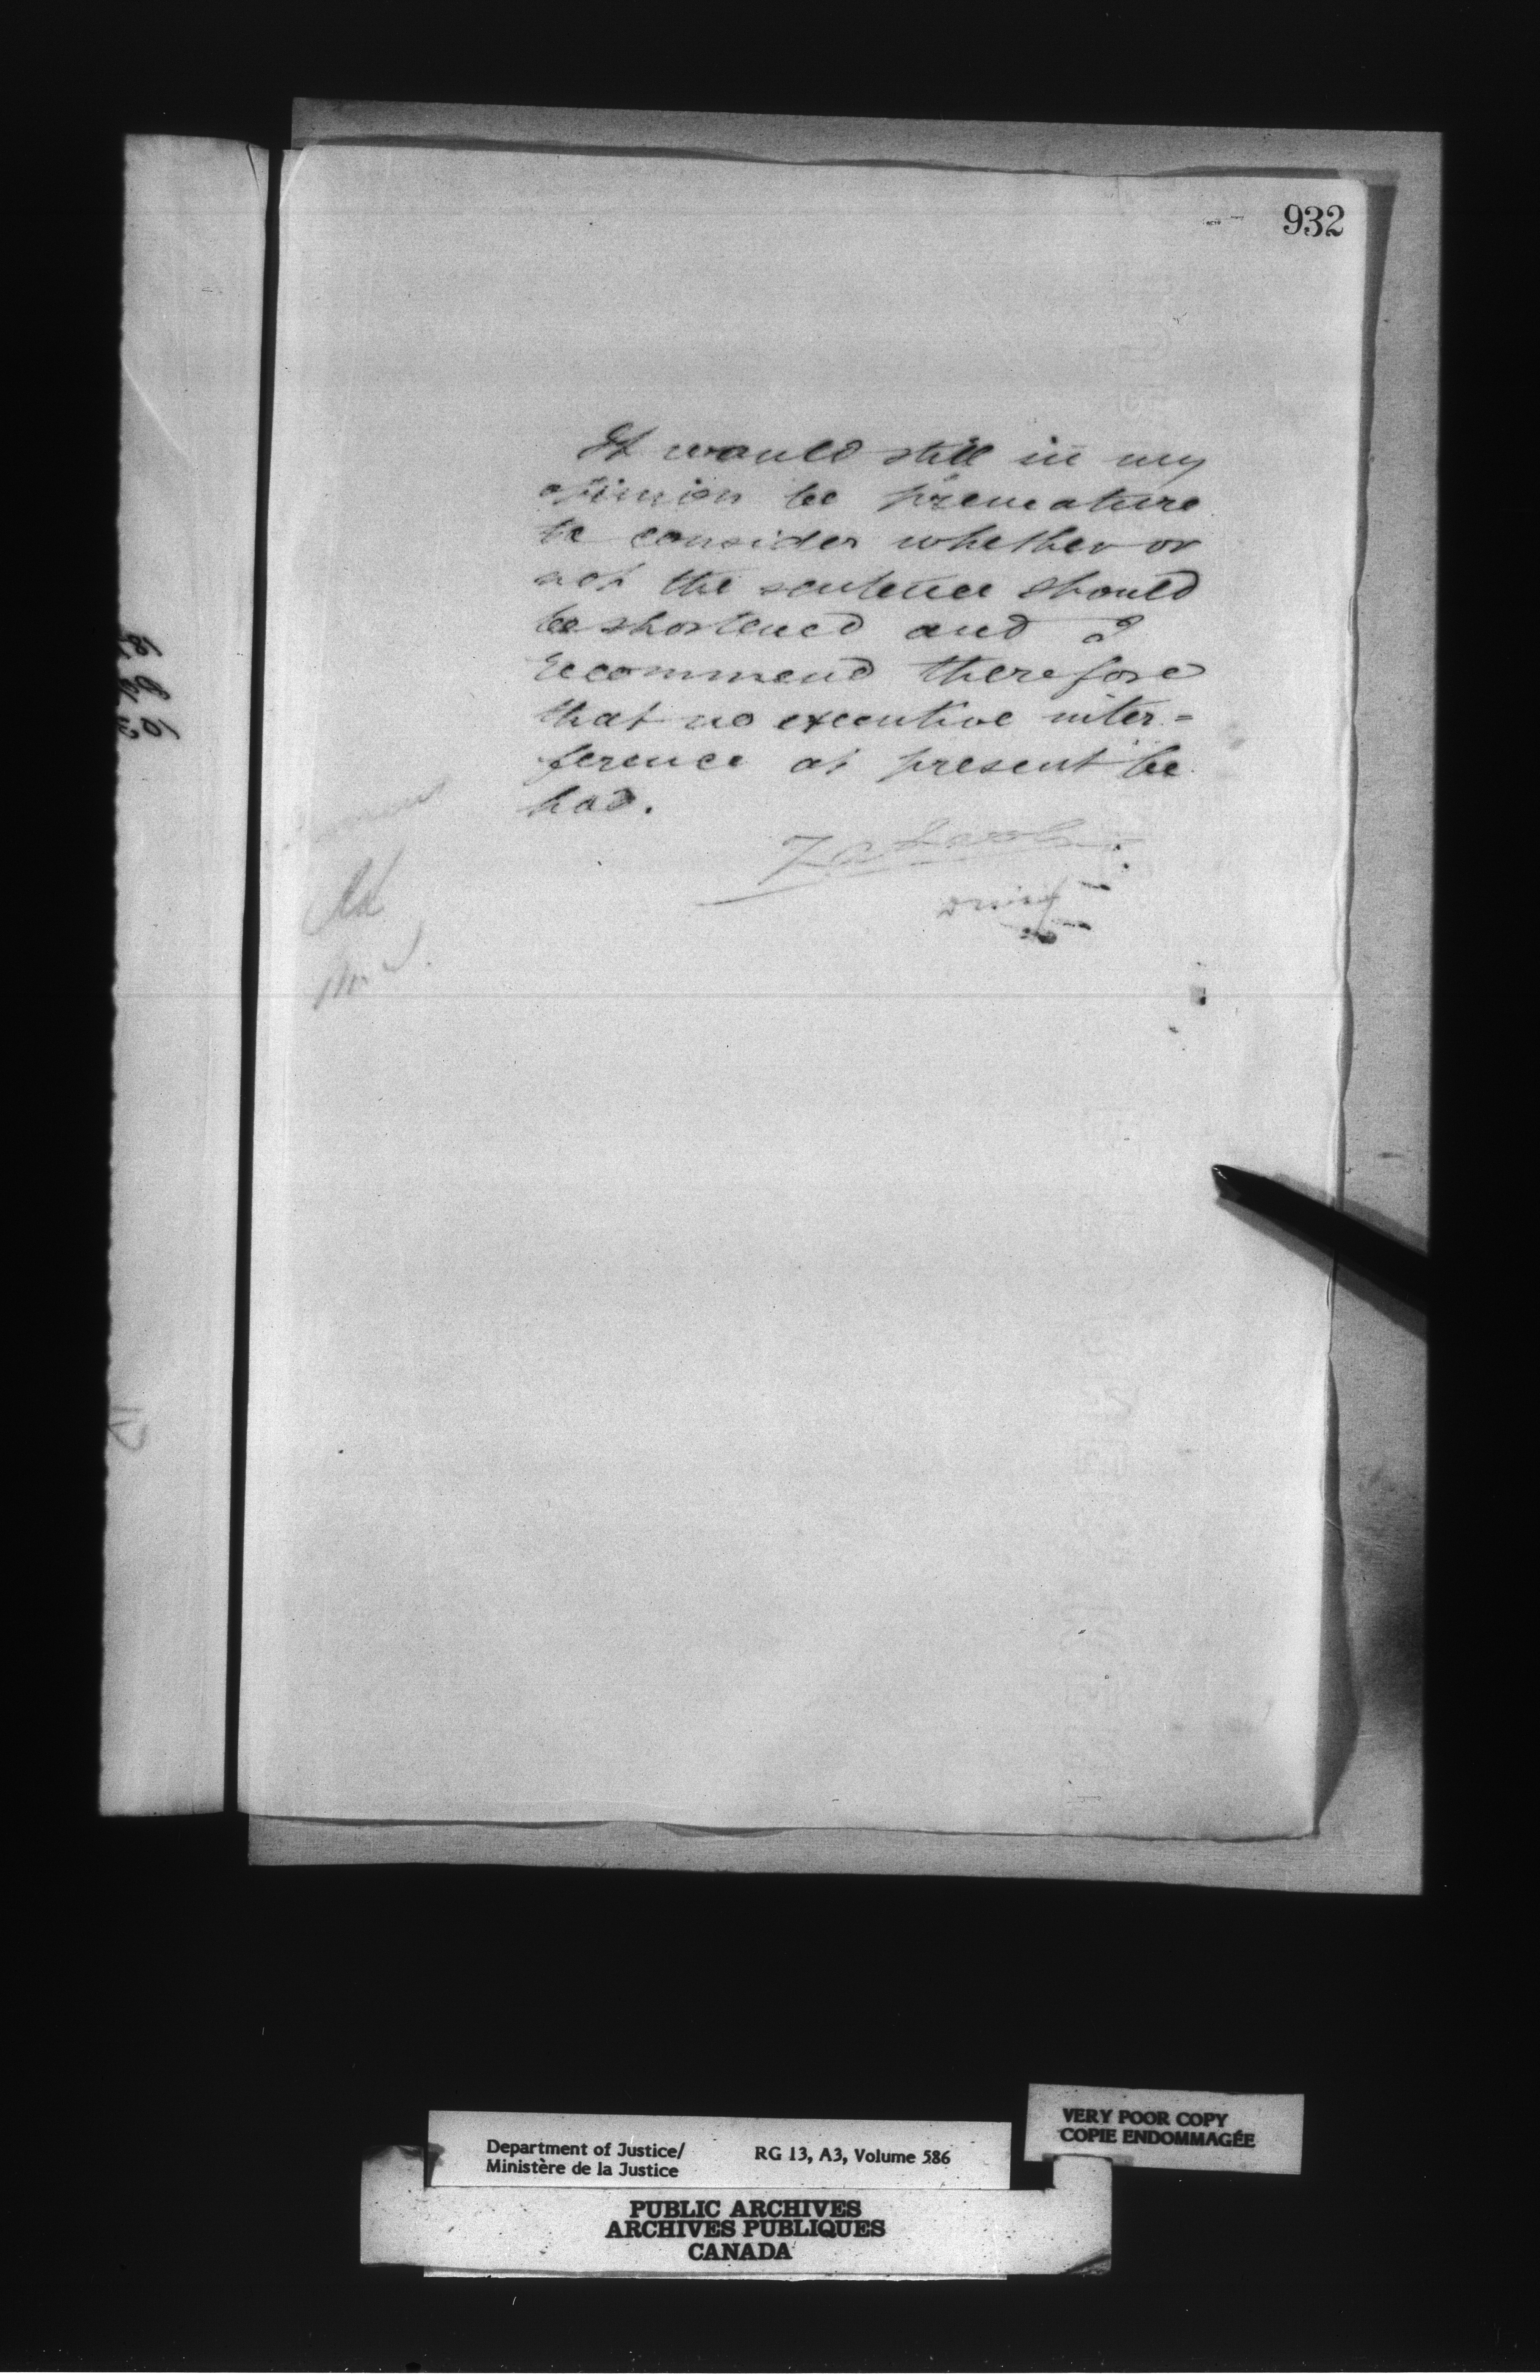 932
It would still in my
opinion be premature
to consider whether or
not the sentence should
be shortened and I
recommend therefore
that no executive inter=
ference at present be
had.
Department of Justice/
Ministère de la Justice
RG 13, A3, Volume 586
VERY POOR COPY
COPIE ENDOMMAGÉE
PUBLIC ARCHIVES
ARCHIVES PUBLIQUES
CANADA